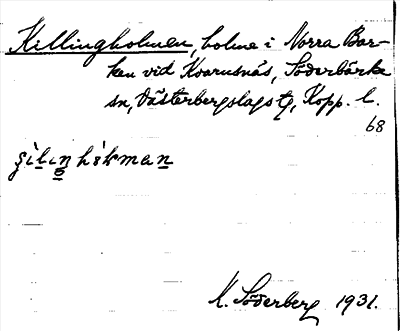 Killingholmen, holme i Norra Bar-
ken vid Kvarnsnäs, Söderbärke
sn, Västerbergslags tg, Kopp. l.
68
K. Söderberg 1931.